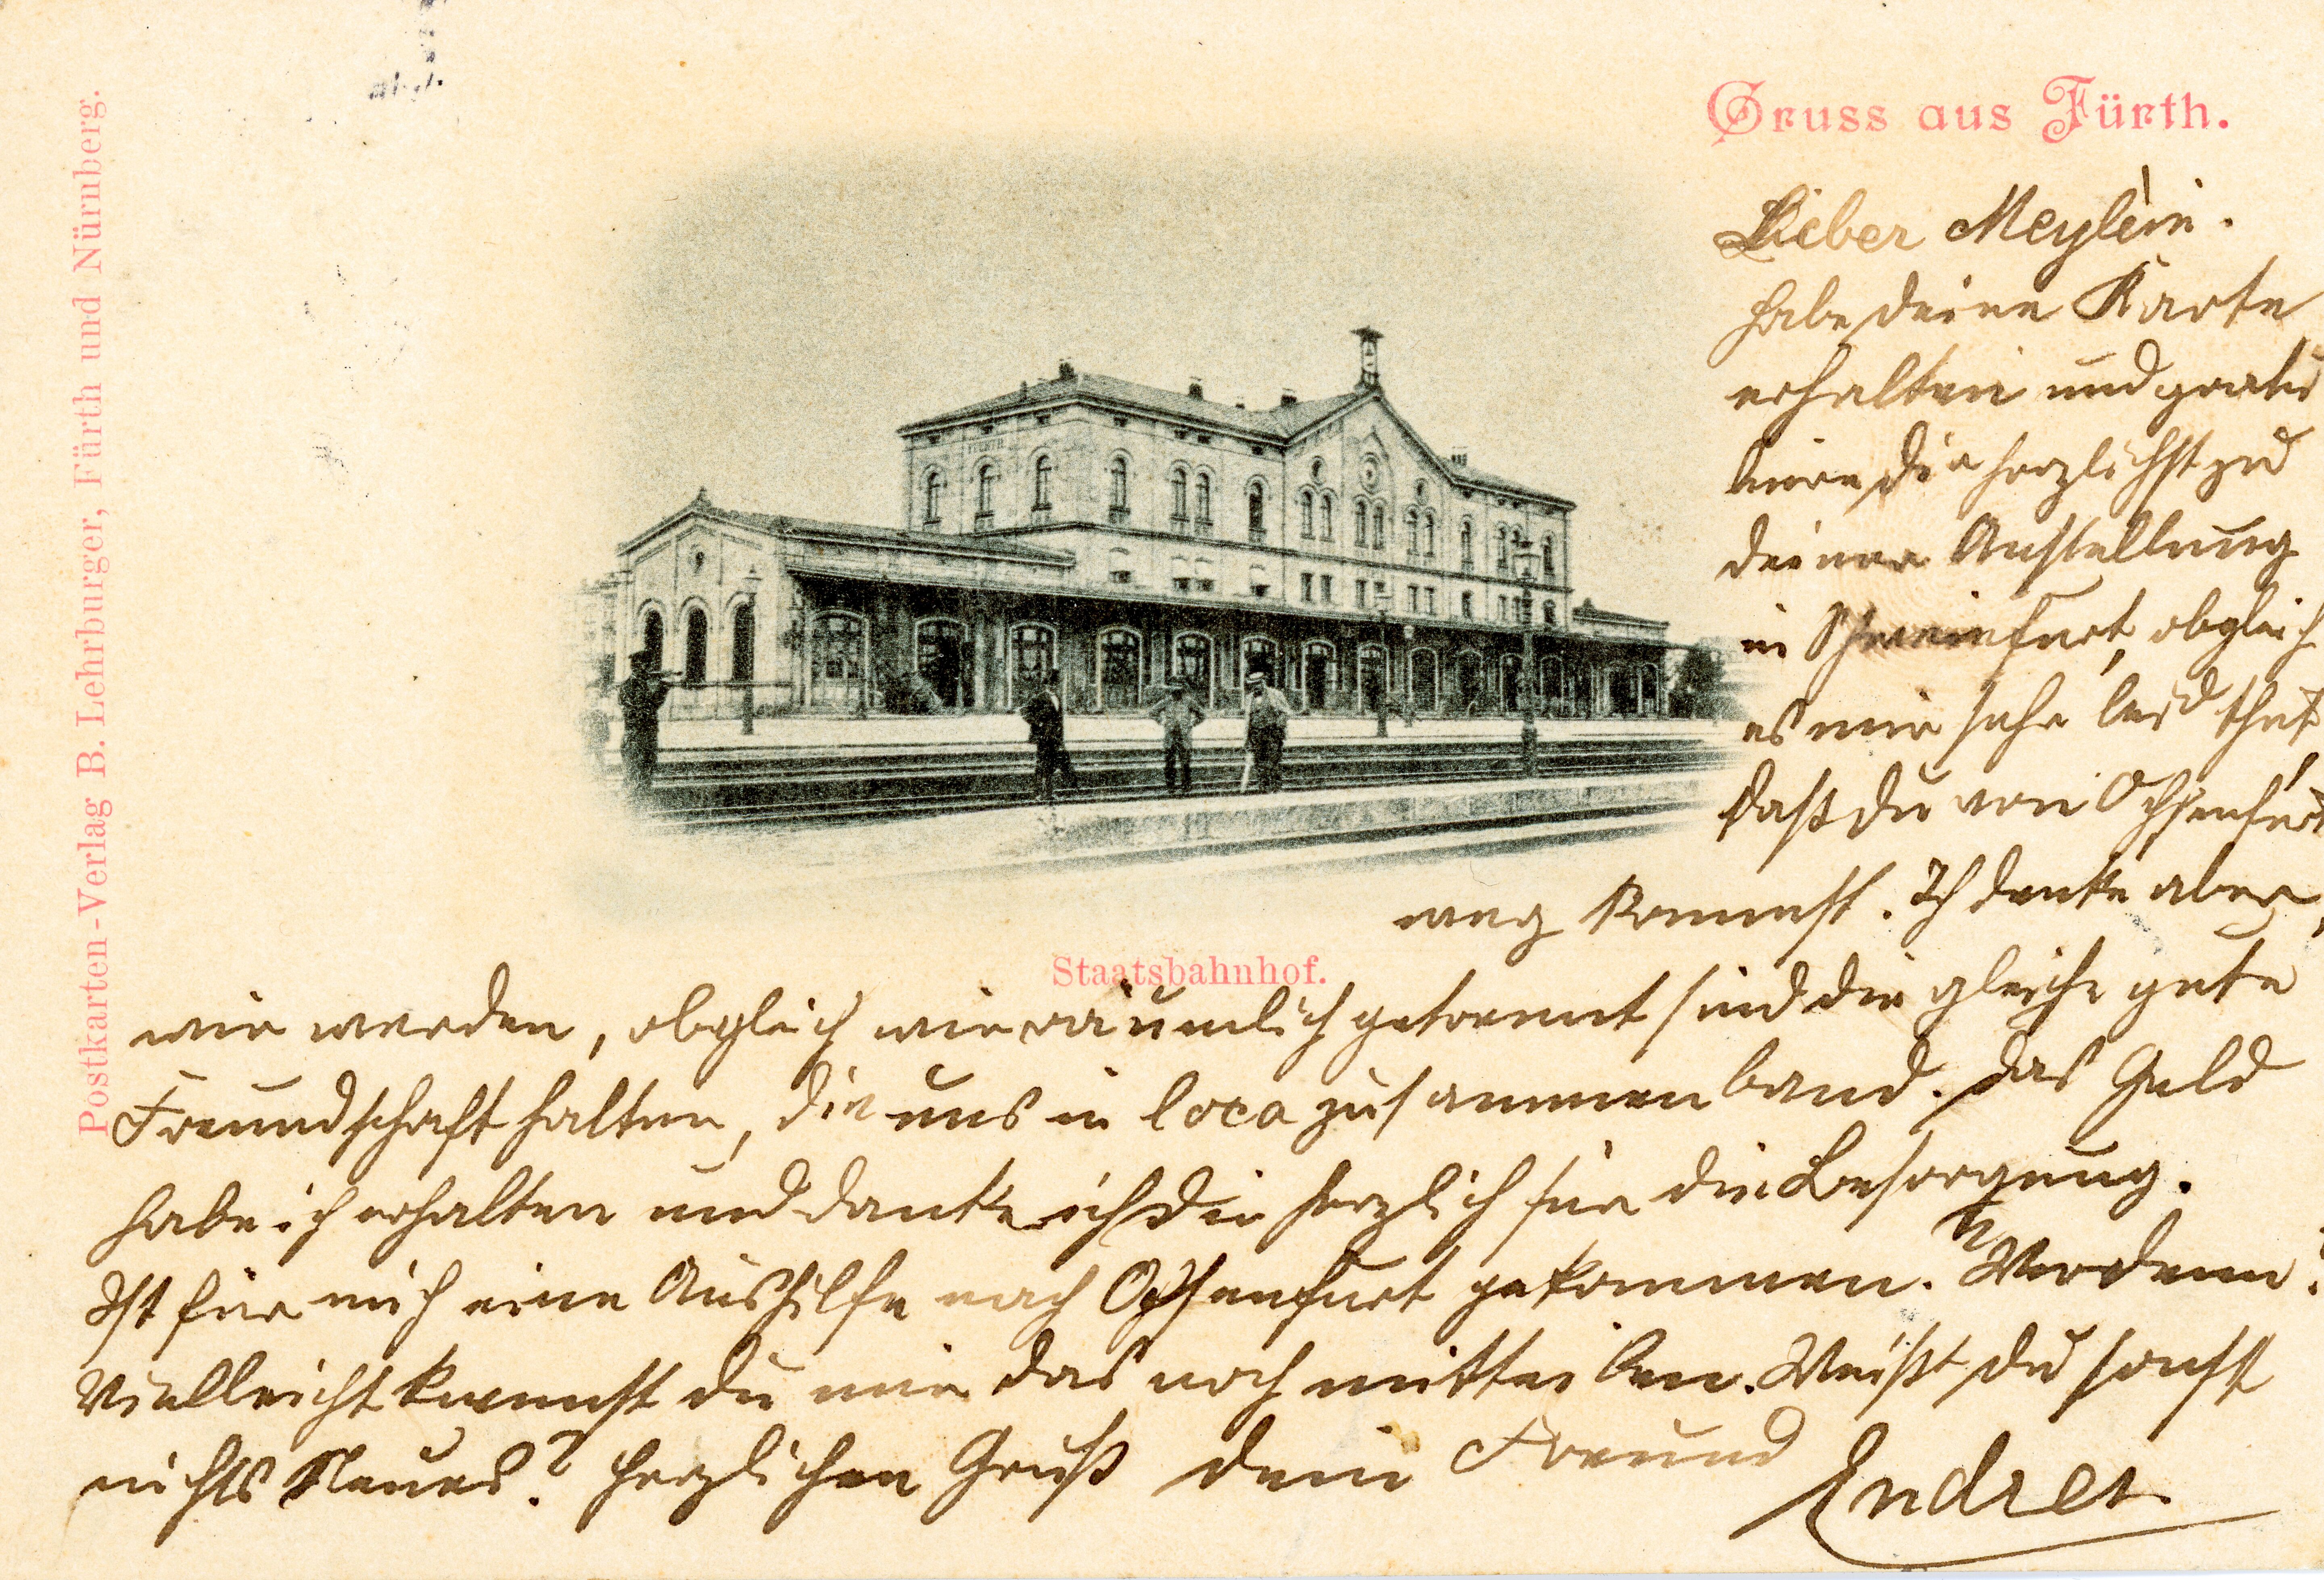 Gruss aus Fürth.
Postkarten-Verlag B. Lehrburger, Fürth und Nürnberg.
Staatsbahnhof.
Lieber Meylein.
Habe deine Karte
erhalten und gratu
liere dir herzlichst zu
deiner Anstellung
in Schweinfurt, obgleich
es mir sehr leid thut
daß du von Ochsenfurt
weg kommst. Ich denke aber,
wir werden, obgleich wir räumlich getrennt sind die gleiche gute
Freundschaft halten, die uns in loco zusammen band. Das Geld
habe ich erhalten und danke ich dir herzlich für die Besorgung.
Ist für mich eine Aushilfe nach Ochsenfurt gekommen. Wer denn?
Vielleicht kannst du mir das noch mitteilen. Weißt du sonst
nichts Neues? Herzlichen Gruß dein Freund
Endres